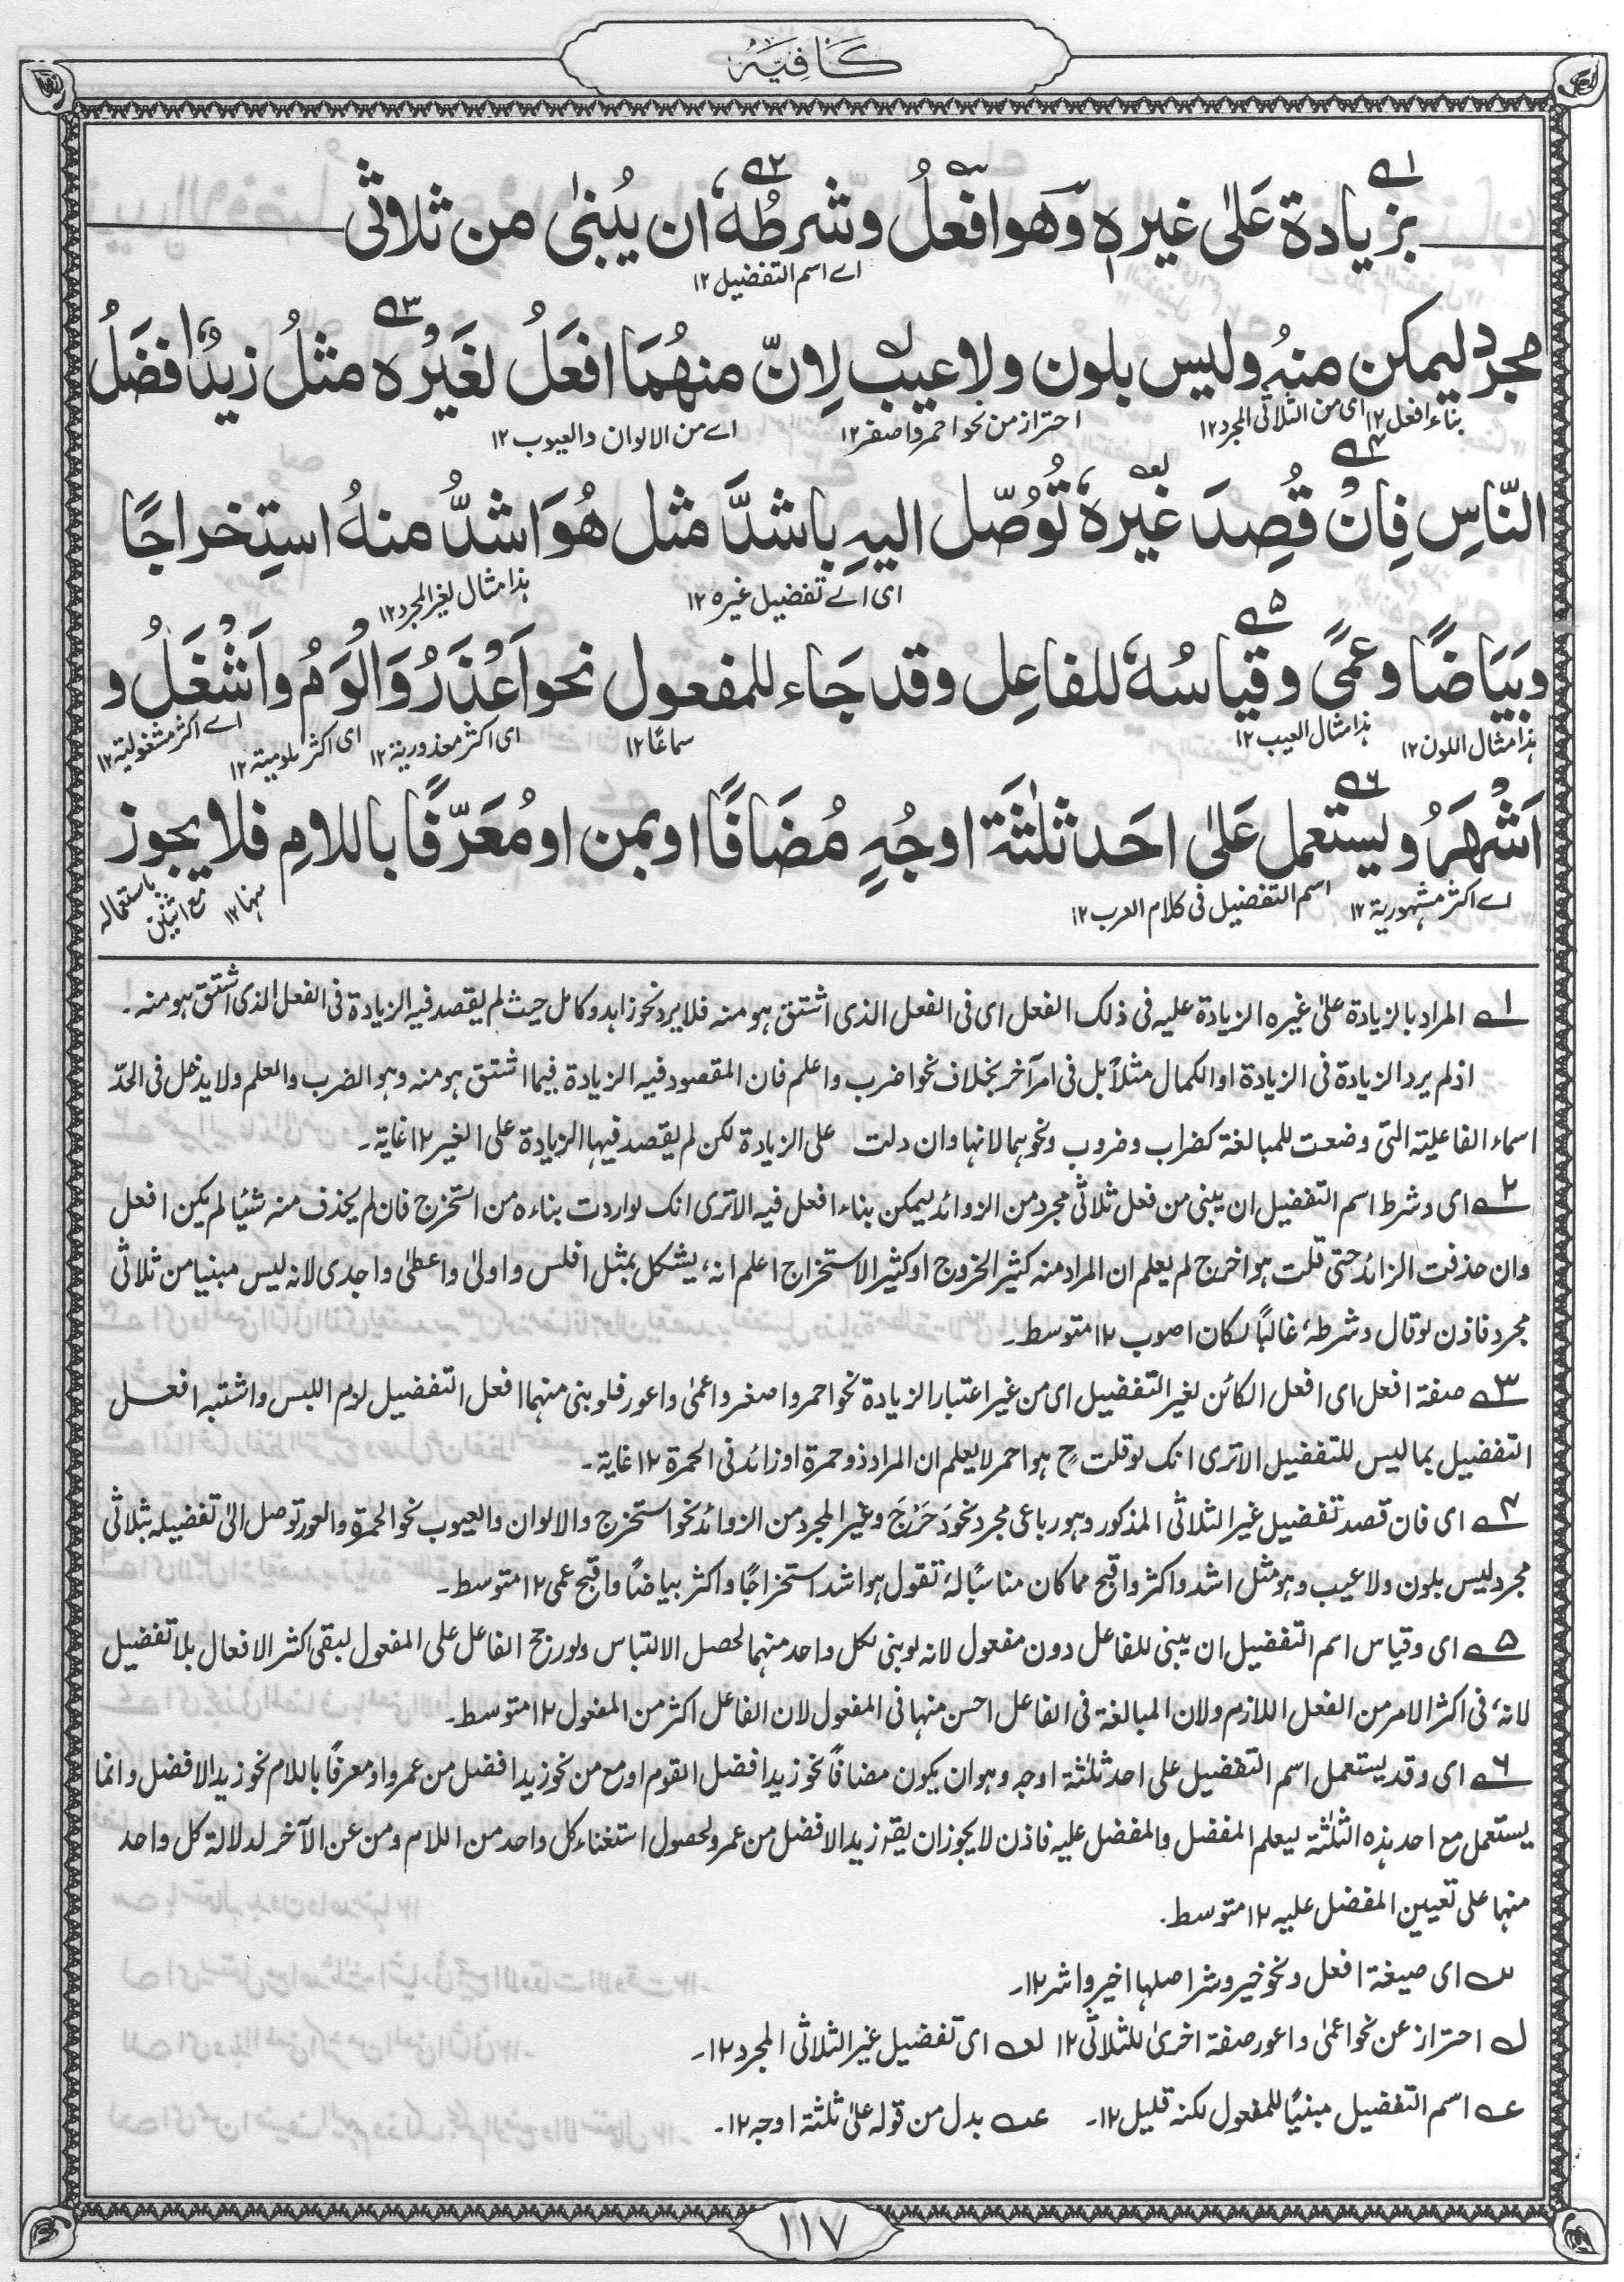 كَافِيَه
بزيادة عَلىٰ غيرهٖ وَهو افعلُ وشرطُهٗ ان يُبنىٰ من ثلاثى
اے اسم التفضيل ١٢
مجرد ليمكن منهُ وليس بلون ولا عيب لِانّ منهُمَا افعَلُ لغَيْره مثلُ زيدٌ افضَلُ
بناء افعل ١٢ اى من الثلاثى المجرد ١٢ احتراز من نحو احمر واصفر ١٢ اے من الالوان والعيوب ١٢
النّاسِ فِانْ قُصِدَ غيرهٗ تُوُصّل اليهِ باشدَّ مثل هُوَ اشدُّ منهُ استِخراجًا
اى اے تفضيل غيره ١٢ هذا مثال لغير المجرد ١٢
وبَيَاضًا وعمًى وقياسُهٗ للفاعِل وقد جَاء للمفعول نحو اَعْذَرُ وَاَلْوَمُ واَشْغَلُ و
هذا مثال اللون ١٢ هذا مثال العيب ١٢ سماعًا ١٢ اى اكثر معذورية ١٢ اى اكثر ملومية ١٢ اے اكثر مشغولية ١٢
اَشْهَرُ ويستعمل عَلىٰ احَد ثلٰثَة اوجُهٍ مُضَافًا او بمن او مُعَرّفًا باللامِ فلا يجوز
اے اكثر مشهورية ١٢ اسم التفضيل فى كلام العرب ١٢ منها ١٢ مع اثنين باستعماله
١ے المراد بالزيادة علىٰ غيره الزيادة عليه فى ذلك الفعل اى فى الفعل الذى اشتق هو منه فلا يرد نحو زابد وكامل حيث لم يقصد فيه الزيادة فى الفعل الذى اشتق هو منه۔
اذ لم يرد الزيادة فى الزيادة او الكمال مثلاً بل فى امر آخر بخلاف نحو اضرب واعلم فان المقصود فيه الزيادة فيما اشتق هو منه وهو الضرب والعلم ولا يدخل فى الحدّ
اسماء الفاعلية التى وضعت للمبالغة كضراب وضروب ونحوهما لانها وان دلت على الزيادة لكن لم يقصد فيها الزيادة على الغير ١٢ غاية۔
٢ے اى وشرط اسم التفضيل ان يبنى من فعل ثلاثى مجرد من الزوائد ليمكن بناء افعل فيه الا ترى انك لو اردت بناءه من استخرج فان لم يحذف منه شيئا لم يكن افعل
وان حذفت الزائد حتى قلت هو اخرج لم يعلم ان المراد منه كثير الخروج او كثير الاستخراج اعلم انهٗ، يشكل بمثل افلس واولىٰ واعطىٰ واجدى لانه ليس مبنيا من ثلاثى
مجرد فاذن لو قال وشرطهٗ، غالبًا لكان اصوب ١٢ متوسط۔
٣ے صفة افعل اى افعل الكائن لغير التفضيل اى من غير اعتبار الزيادة نحو احمر واصفر واعمىٰ واعور فلو بنى منهما افعل التفضيل لزم اللبس واشتبه افعل
التفضيل بما ليس للتفضيل الا ترى انك لو قلت ح هو احمر لا يعلم ان المراد ذو حمرة او زائد فى الحمرة ١٢ غاية۔
٤ے اى فان قصد تفضيل غير الثلاثى المذكور وهو رباعى مجرد نحو دَحْرَجَ وغير المجرد من الزوائد نحو استخرج والالوان والعيوب نحو الحمرة والعور توصل الىٰ تفضيله بثلاثى
مجرد ليس بلون ولا عيب وهو مثل اشد واكثر واقبح مما كان مناسبًا لهٗ، تقول هو اشد استخراجًا واكثر بياضًا واقبح عمى ١٢ متوسط۔
٥ے اى وقياس اسم التفضيل ان يبنى للفاعل دون مفعول لانه لو بنى لكل واحد منهما لحصل الالتباس ولو رجح الفاعل على المفعول لبقى اكثر الافعال بلا تفضيل
لانهٗ، فى اكثر الامر من الفعل اللازم ولان المبالغة فى الفاعل احسن منها فى المفعول لان الفاعل اكثر من المفعول ١٢ متوسط۔
٦ے اى وقد يستعمل اسم التفضيل على احد ثلٰثة اوجه وهو ان يكون مضافًا نحو زيد افضل القوم او مع من نحو زيد افضل من عمرو او معرفًا باللام نحو زيد الافضل وانما
يستعمل مع احد هذه الثلٰثة ليعلم المفضل والمفضل عليه فاذن لا يجوز ان يقر زيد الافضل من عمرو لحصول استغناء كل واحد من اللام ومن عن الآخر لدلالة كل واحد
منهما على تعيين المفضل عليه ١٢ متوسط۔
اى صيغة افعل ونحو خير وشر اصلها اخير واشر ١٢۔
احتراز عن نحو اعمىٰ واعور صفة اخرىٰ للثلاثى ١٢ اى تفضيل غير الثلاثى المجرد ١٢۔
اسم التفضيل مبنيًا للمفعول لكنه قليل ١٢۔ بدل من قوله علىٰ ثلثة اوجه ١٢۔
١١٧